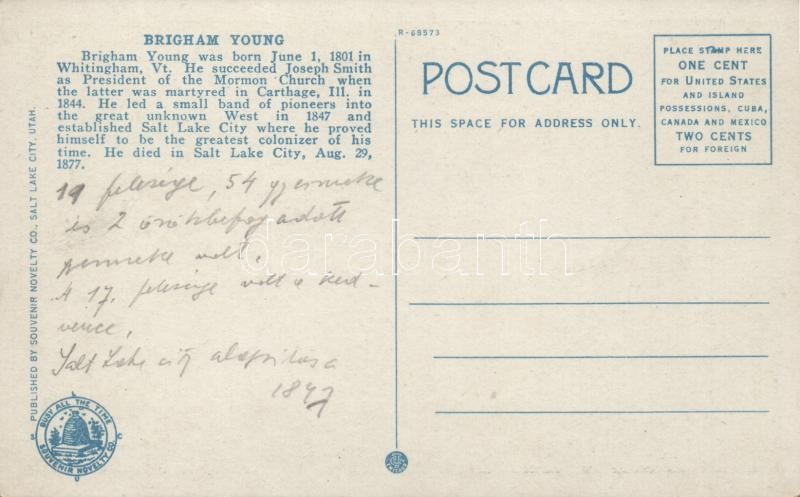 BRIGHAM YOUNG
Brigham Young was born June 1, 1801 in
Whitingham, Vt. He succeeded Joseph Smith
as President of the Mormon Church when
the latter was martyred in Carthage, Ill. in
1844. He led a small band of pioneers into
the great unknown West in 1847 and
established Salt Lake City where he proved
himself to be the greatest colonizer of his
time. He died in Salt Lake City, Aug. 29,
1877.
19 felesége, 54 gyermeke
és 2 örökbefogadott
gyermeke volt.
A 17. felesége volt a ked-
vence,
Salt Lake city alapítása
1847
PUBLISHED BY SOUVENIR NOVELTY CO., SALT LAKE CITY, UTAH.
BUSY ALL THE TIME
SOUVENIR NOVELTY CO.
S L C U
R-68573
POSTCARD
THIS SPACE FOR ADDRESS ONLY.
PLACE STAMP HERE
ONE CENT
FOR UNITED STATES
AND ISLAND
POSSESSIONS, CUBA,
CANADA AND MEXICO
TWO CENTS
FOR FOREIGN
darabanth